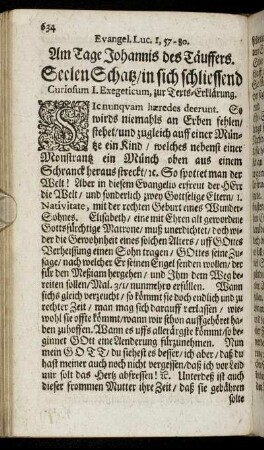 634
Evangel. Luc. 1, 57-80.
Am Tage Johannis des Täuffers.
Seelen Schatz/ in sich schliessend
Curiosum I. Exegeticum, zur Texts-Erklärung.
Sic nunqvam hæredes deerunt. So
wirds niemahls an Erben fehlen/
stehet/ und zugleich auff einer Mün-
tze ein Kind/ welches nebenst einer
Monstrantz ein Münch oben aus einem
Schranck heraus streckt/ ꝛc. So spottet man der
Welt! Aber in diesem Evangelio erfreut der HErr
die Welt/ und sonderlich zwey Gottselige Eltern 1.
Nativitate, mit der rechten Geburt eines Wunder-
Sohnes. Elisabeth/ eine mit Ehren alt gewordene
Gottsfürchtige Matrone/ muß unerdichtet/ doch wi-
der die Gewohnheit eines solchen Alters/ uff GOttes
Verheissung einen Sohn tragen/ GOttes seine Zu-
sage/ nach welcher Er seinen Engel senden wollen/ der
für den Meßiam hergehen/ und Ihm dem Weg be-
reiten sollen/ Mal. 3/1/ nunmehro erfüllen. Wann
sichs gleich verzeucht/ so kömmt sie doch endlich und zu
rechter Zeit/ man mag sich darauff verlassen/ wie-
wohl sie offte kömmt/ wann wir schon auffgehöret ha-
ben zuhoffen. Wann es uffs allerärgste kömmt/ so be-
ginnet GOtt eine Aenderung fürzunehmen. Nun
mein GOTT/ du siehest es besser/ ich aber/ daß du
hast meiner auch noch nicht vergessen/ daß ich vor Leid
mir solt das Hertz abfressen! ꝛc. Unterdeß ist auch
dieser frommen Mutter ihre Zeit/ daß sie gebähren
solte